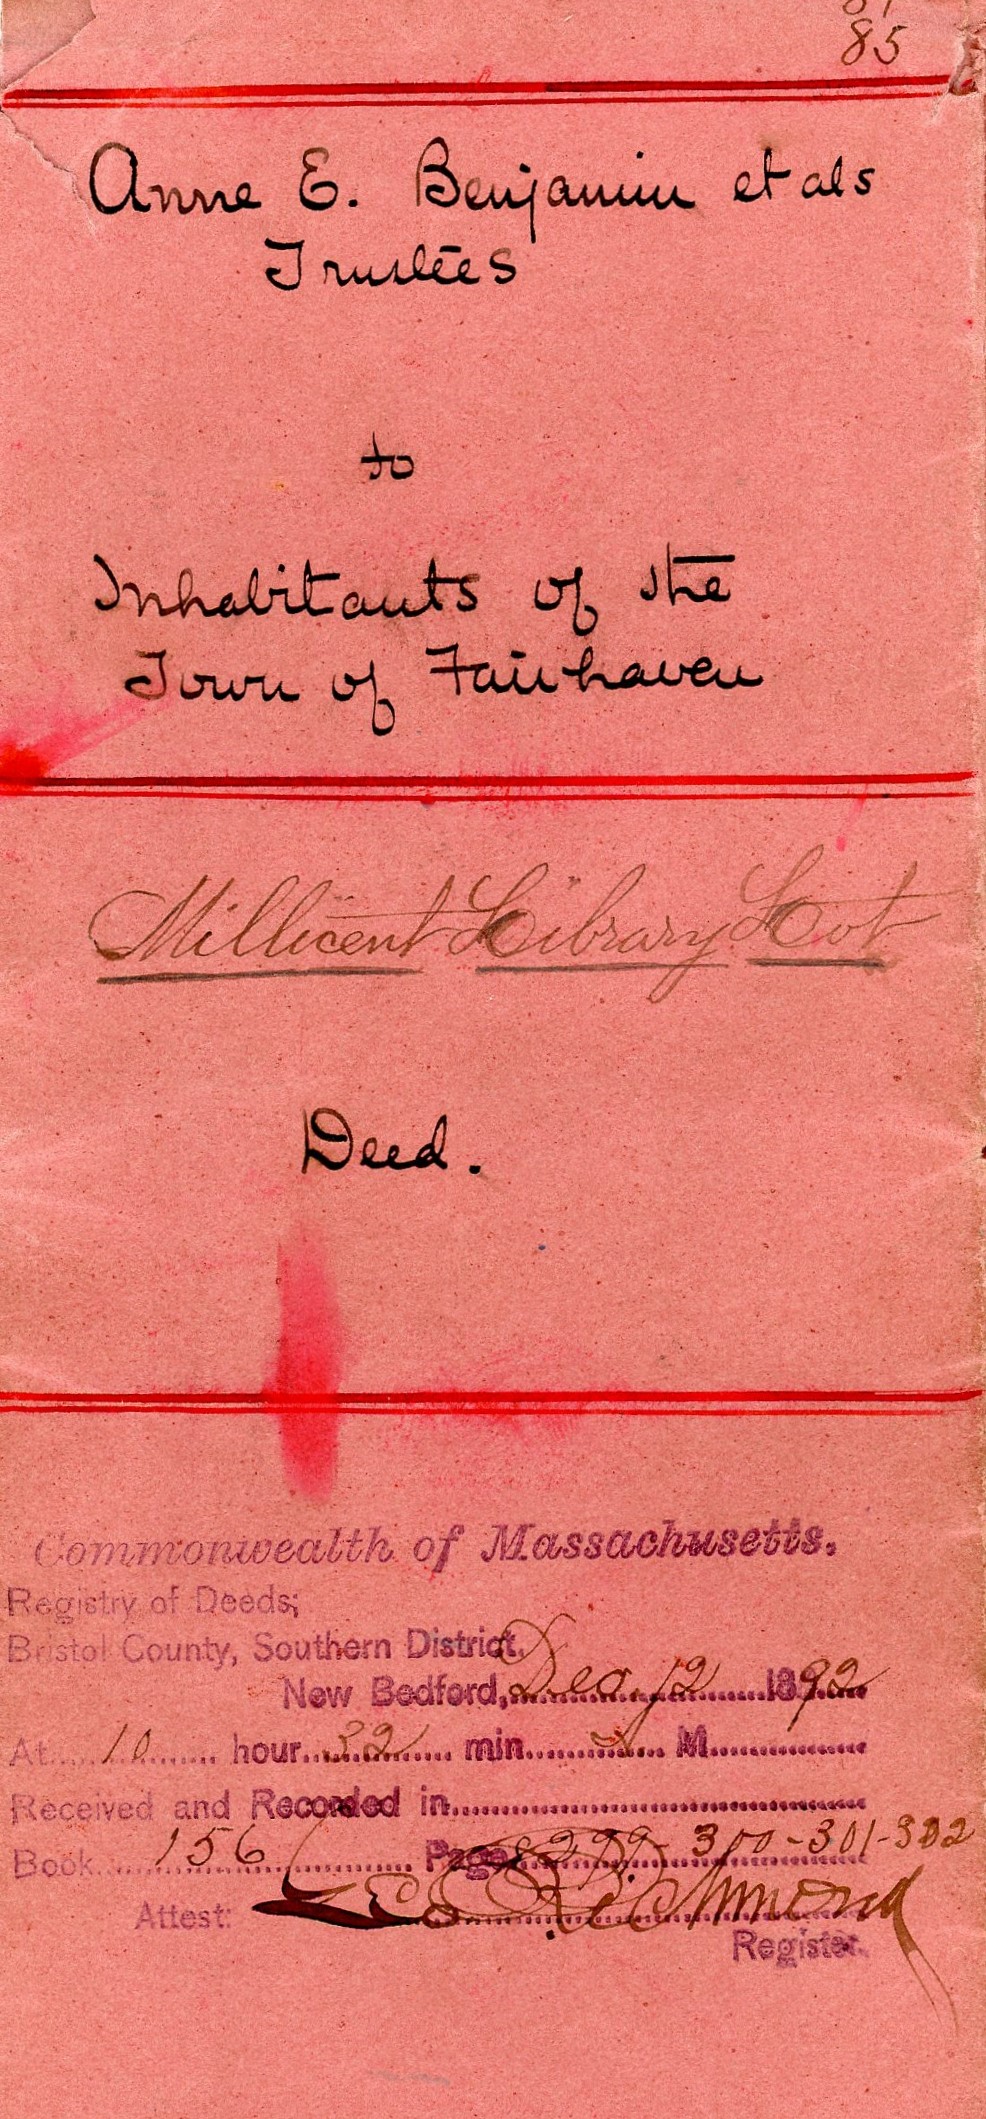 85
Anne E. Benjamin et als
Trustees
to
Inhabitants of the
Town of Fairhaven
Millicent Library Lot
Deed.
Commonwealth of Massachusetts.
Registry of Deeds;
Bristol County, Southern District.
New Bedford, Dec. 12 1892
At 10 hour 32 min M
Received and Recorded in
Book 156 Pages 299-300-301-302
Attest: Richmond
Register.